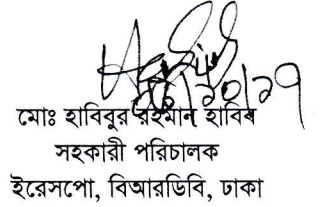 মোঃ হাবিবুর রহমান হাবিব
সহকারী পরিচালক
ইরেসপো, বিআরডিবি, ঢাকা